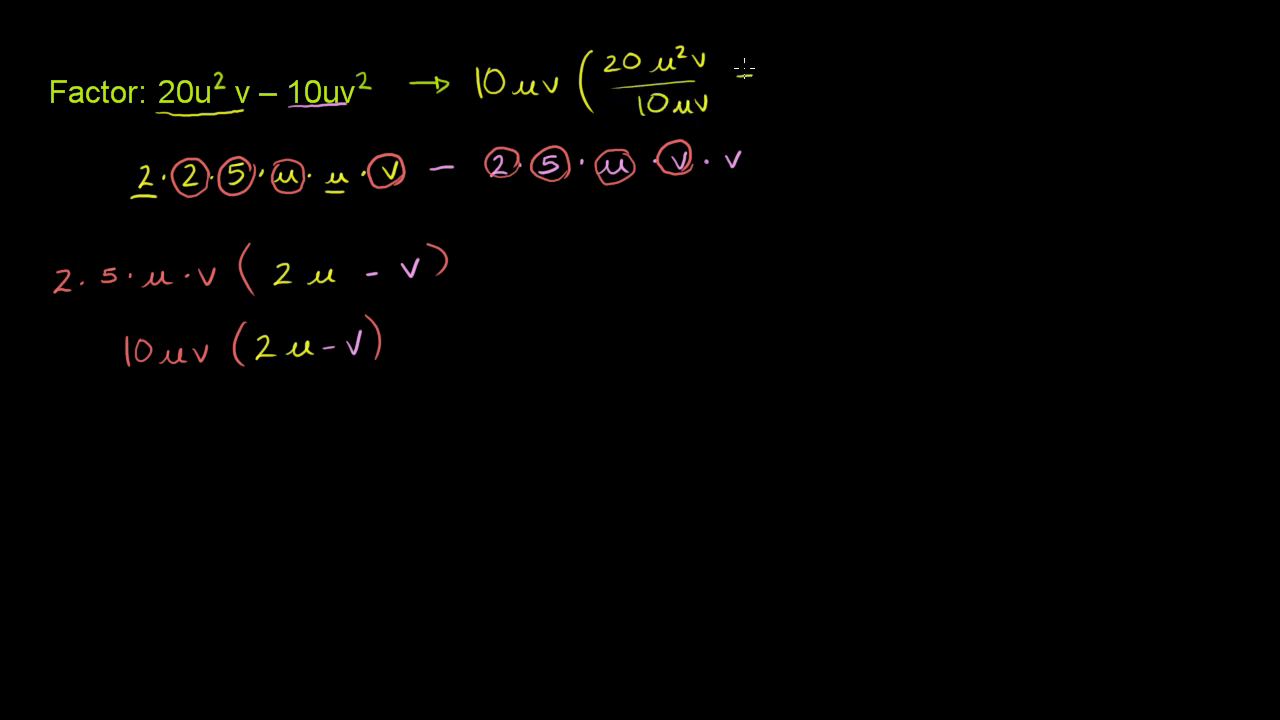 Factor: 20u² v – 10uv² → 10uv ( 20u²v / 10uv –
2 · 2 · 5 · u · u · v – 2 · 5 · u · v · v
2 · 5 · u · v ( 2u - v )
10uv ( 2u - v )